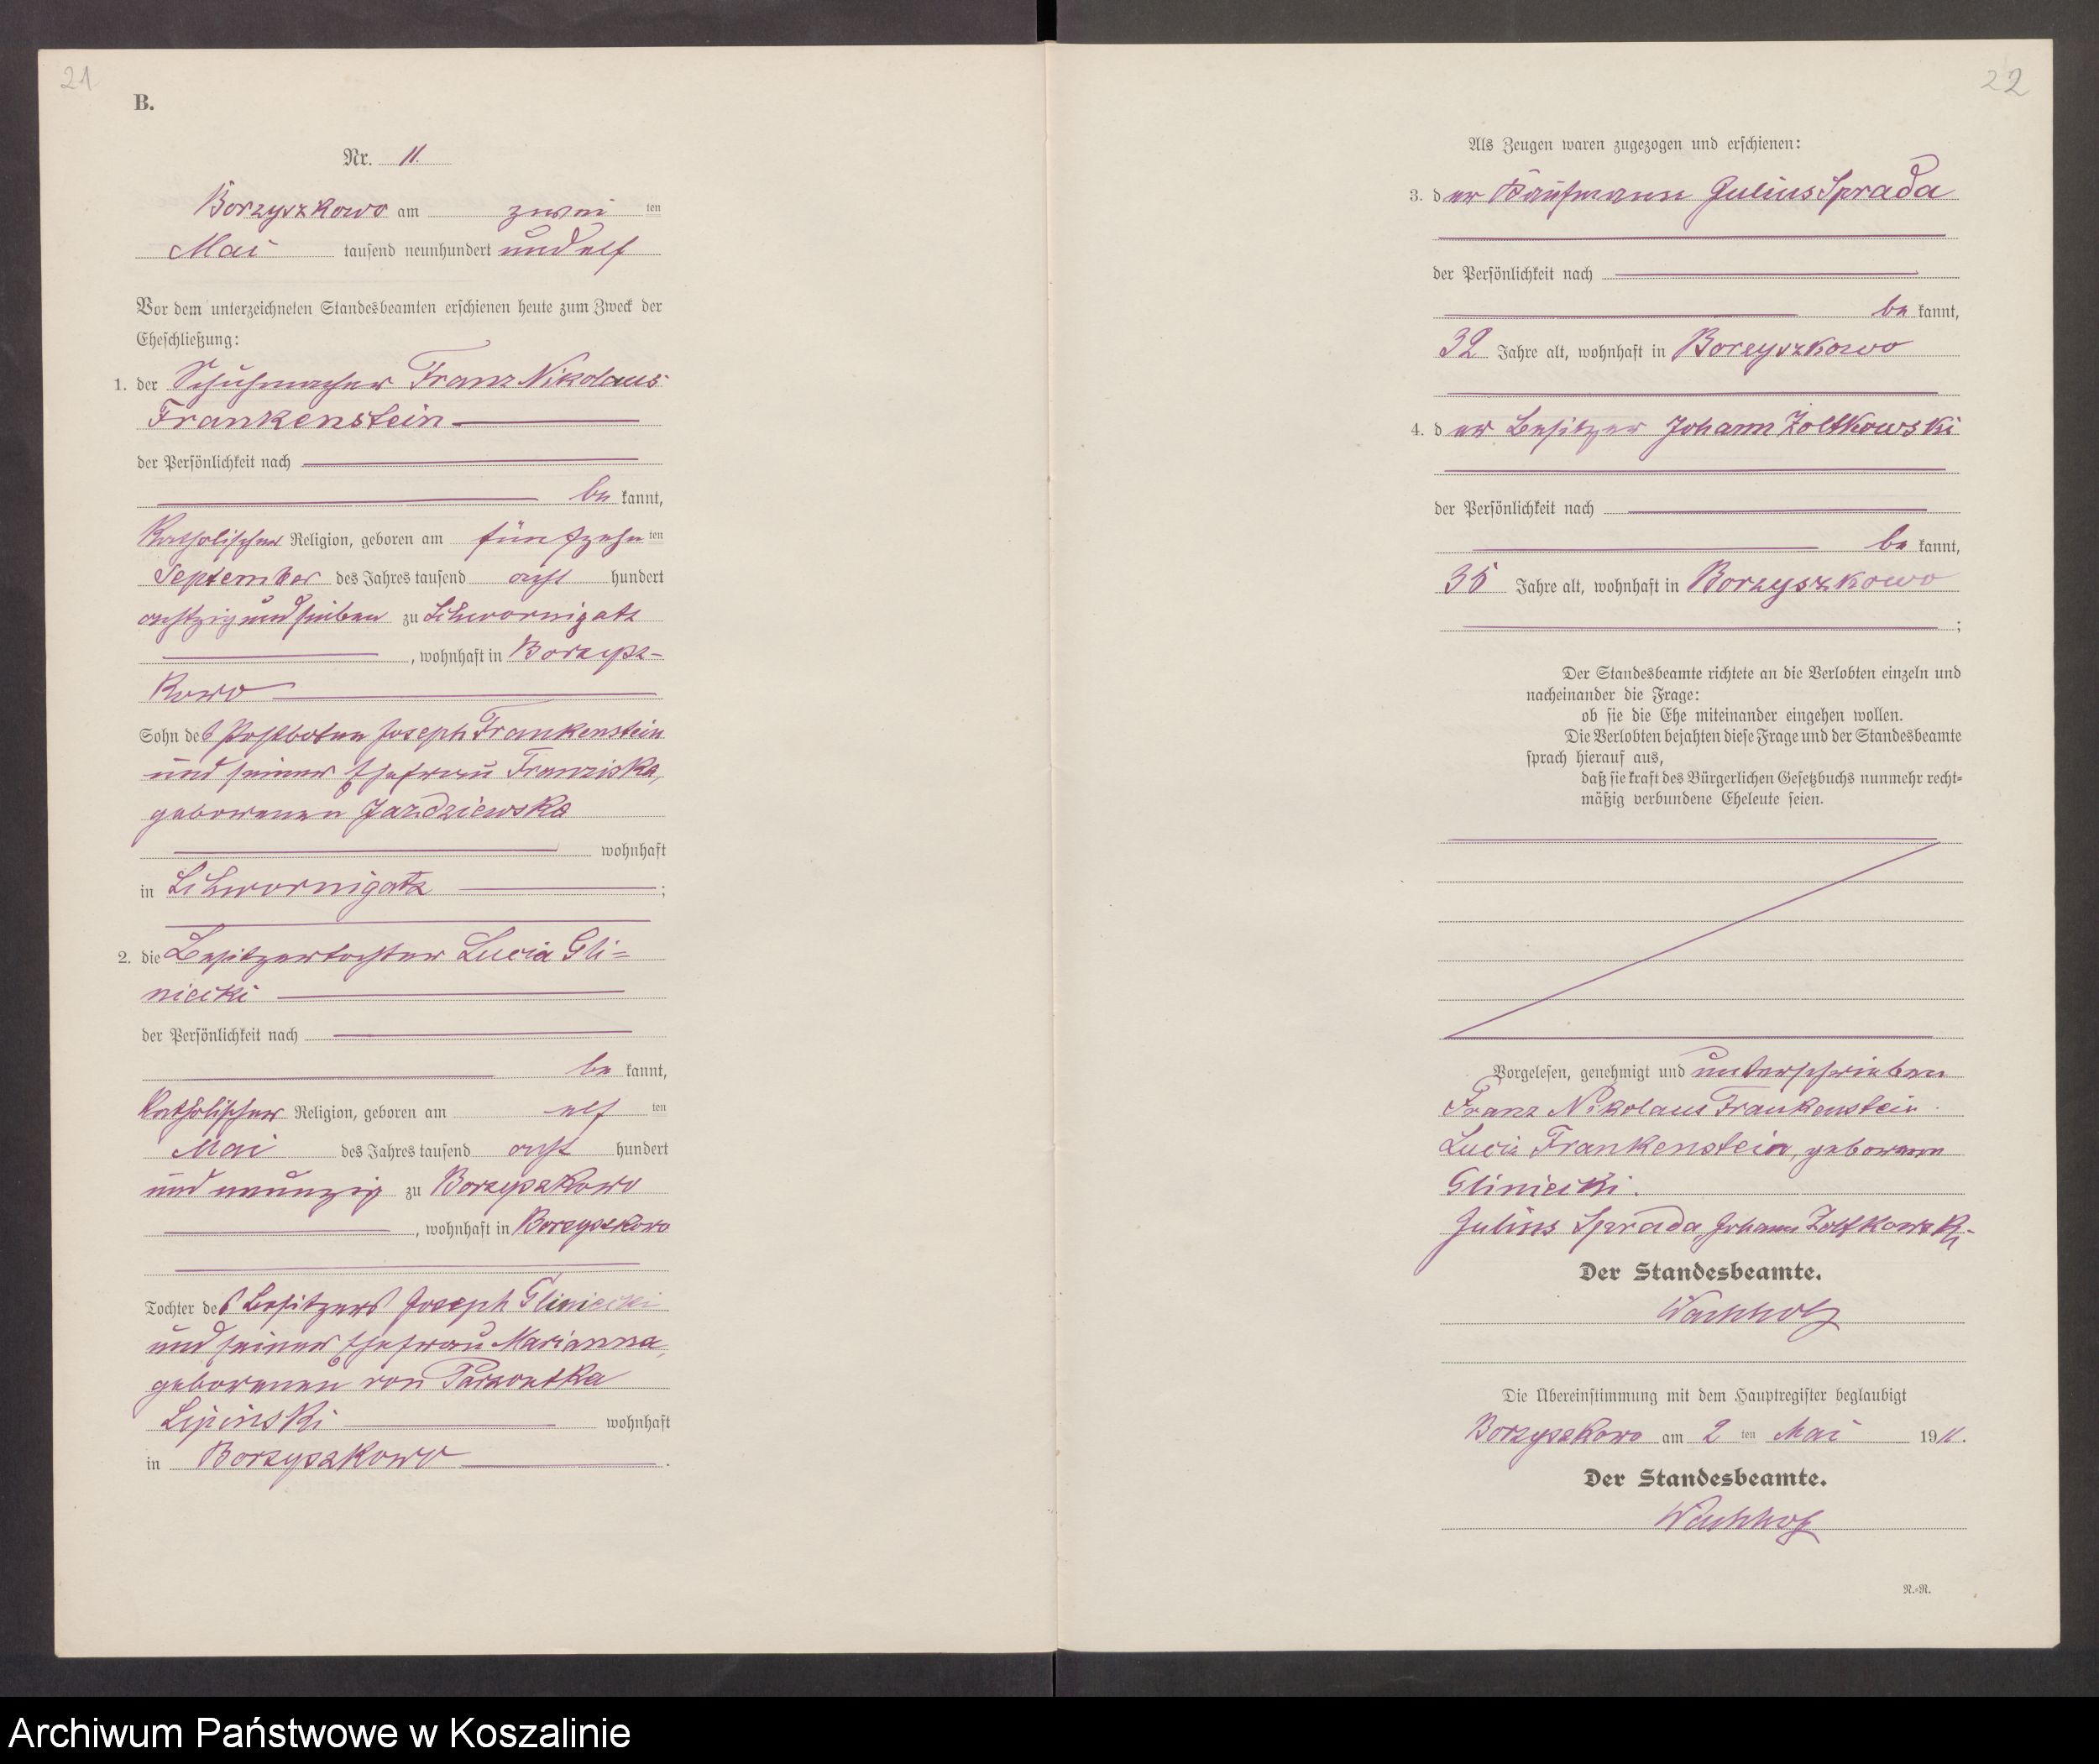 21
B.
Nr. 11.
Borzyszkowo am zwei ten
Mai tausend neunhundert und elf
Vor dem unterzeichneten Standesbeamten erschienen heute zum Zweck der
Eheschließung:
1. der Schuhmacher Franz Nikolaus
Frankenstein
der Persönlichkeit nach
be kannt,
Katholischer Religion, geboren am fünfzehn ten
September des Jahres tausend acht hundert
achtzig und sieben zu Schwornigatz
, wohnhaft in Borzysz-
kowo
Sohn des Postboten Joseph Frankenstein
und seiner Ehefrau Franziska,
geborenen Jazdziewska
wohnhaft
in Schwornigatz ;
2. die Besitzertochter Lucia Gli=
niecki
der Persönlichkeit nach
be kannt,
Katholischer Religion, geboren am elf ten
Mai des Jahres tausend acht hundert
und neunzig zu Borzyszkowo
, wohnhaft in Borzyszkowo
Tochter des Besitzers Joseph Gliniecki
und seiner Ehefrau Marianna,
geborenen von
Lipinski wohnhaft
in Borzyszkowo .
22
Als Zeugen waren zugezogen und erschienen:
3. d er Kaufmann Julius Sprada
der Persönlichkeit nach
be kannt,
32 Jahre alt, wohnhaft in Borzyszkowo
4. d er Besitzer Johann Zoltkowski
der Persönlichkeit nach
be kannt,
35 Jahre alt, wohnhaft in Borzyszkowo
;
Der Standesbeamte richtete an die Verlobten einzeln und
nacheinander die Frage:
ob sie die Ehe miteinander eingehen wollen.
Die Verlobten bejahten diese Frage und der Standesbeamte
sprach hierauf aus,
daß sie kraft des Bürgerlichen Gesetzbuchs nunmehr recht=
mäßig verbundene Eheleute seien.
Vorgelesen, genehmigt und unterschrieben
Franz Nikolaus Frankenstein.
Lucia Frankenstein, geborene
Gliniecki.
Julius Sprada, Johann Zoltkowski.
Der Standesbeamte.
Wachholz
Die Übereinstimmung mit dem Hauptregister beglaubigt
Borzyszkowo am 2 ten Mai 19 11.
Der Standesbeamte.
Wachholz
N.=N.
Archiwum Państwowe w Koszalinie